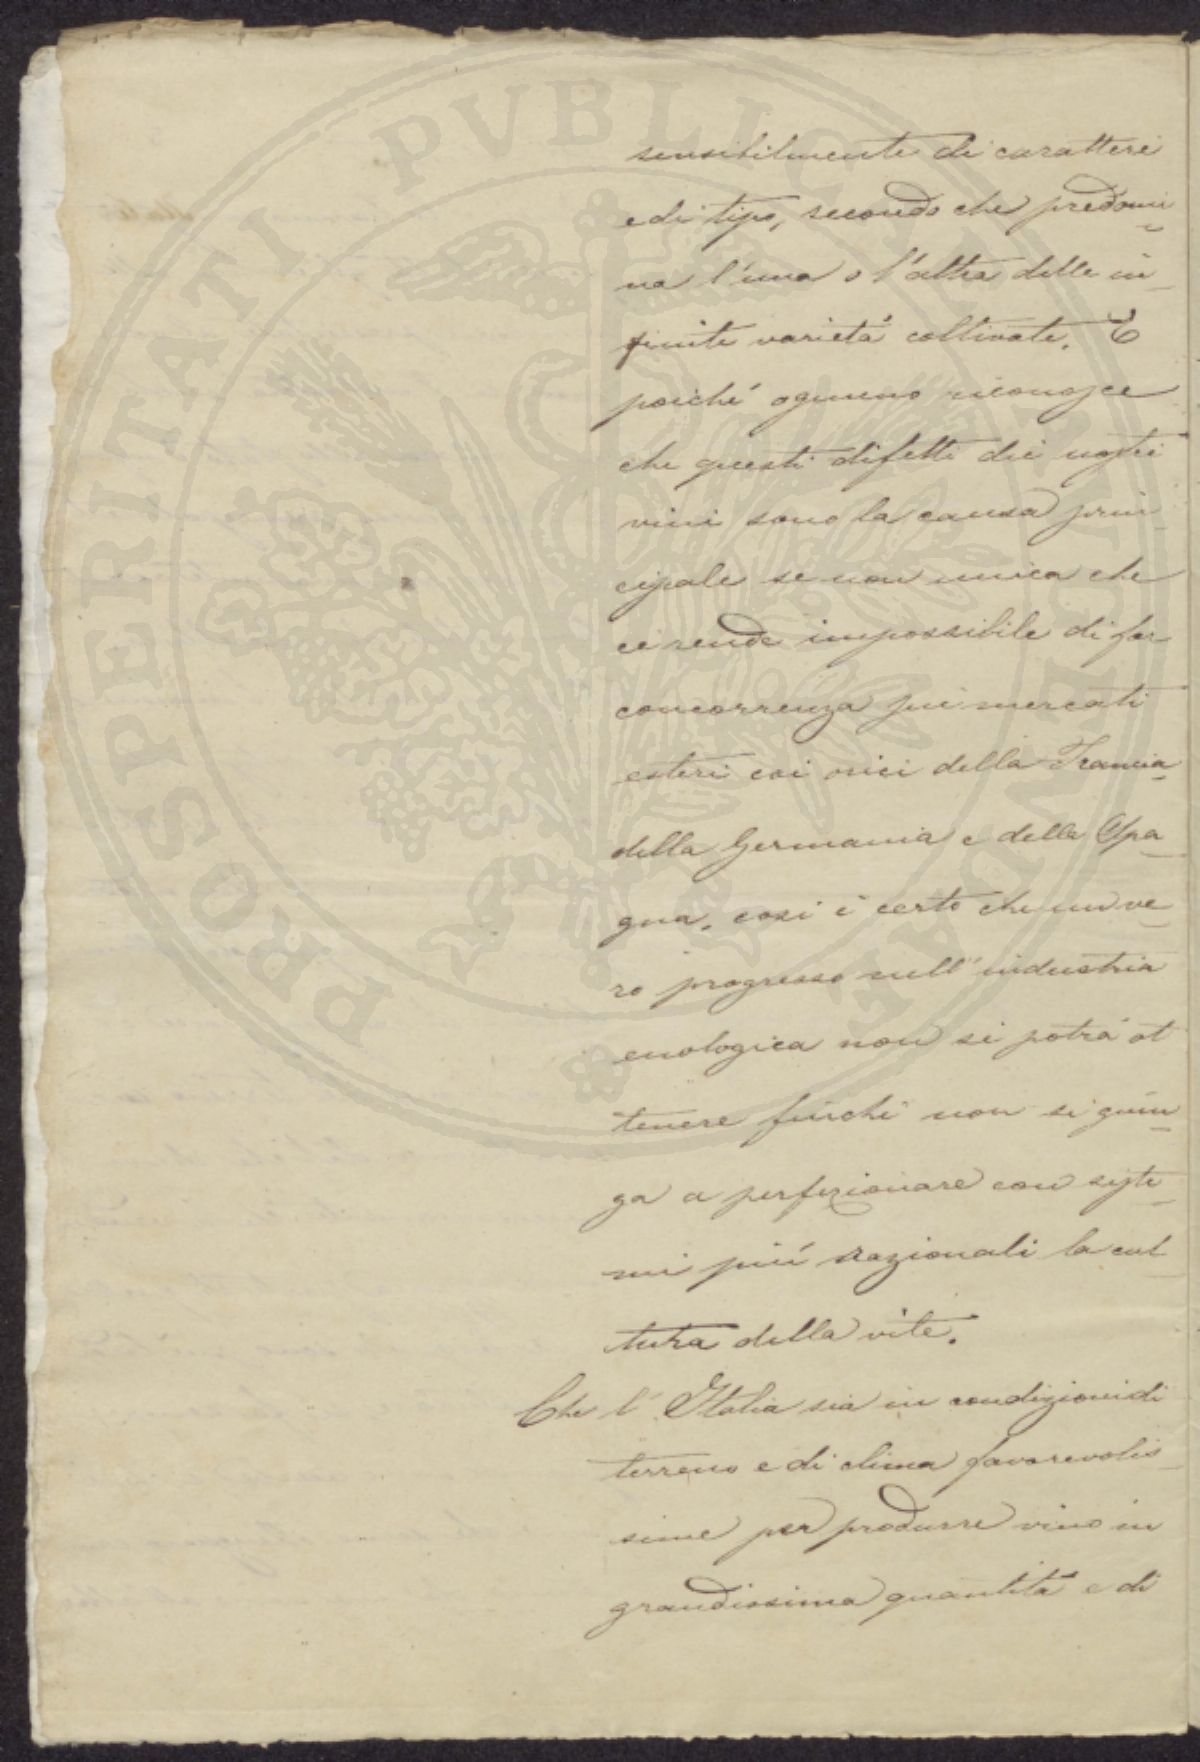 sensibilmente di caratteri
e di tipo, secondo che predomi-
na l'una o l'altra delle in-
finite varietà coltivate. E
poiché ognuno riconosce
che questi difetti dei nostri
vini sono la causa prin-
cipale se non unica che
ci rende impossibile di far
concorrenza sui mercati
esteri coi vini della Francia
della Germania e della Spa-
gna, cosi è certo che un ve-
ro progresso nell'industria
enologica non si potrà ot
tenere finché non si giun-
ga a perfezionare con siste-
mi più razionali la col-
tura della vite.
Che l'Italia sia in condizioni di
terreno e di clima favorevolis-
sime per produrre vino in
grandissima quantità e di
PROSPERITATI PVBLICAE AVGENDAE